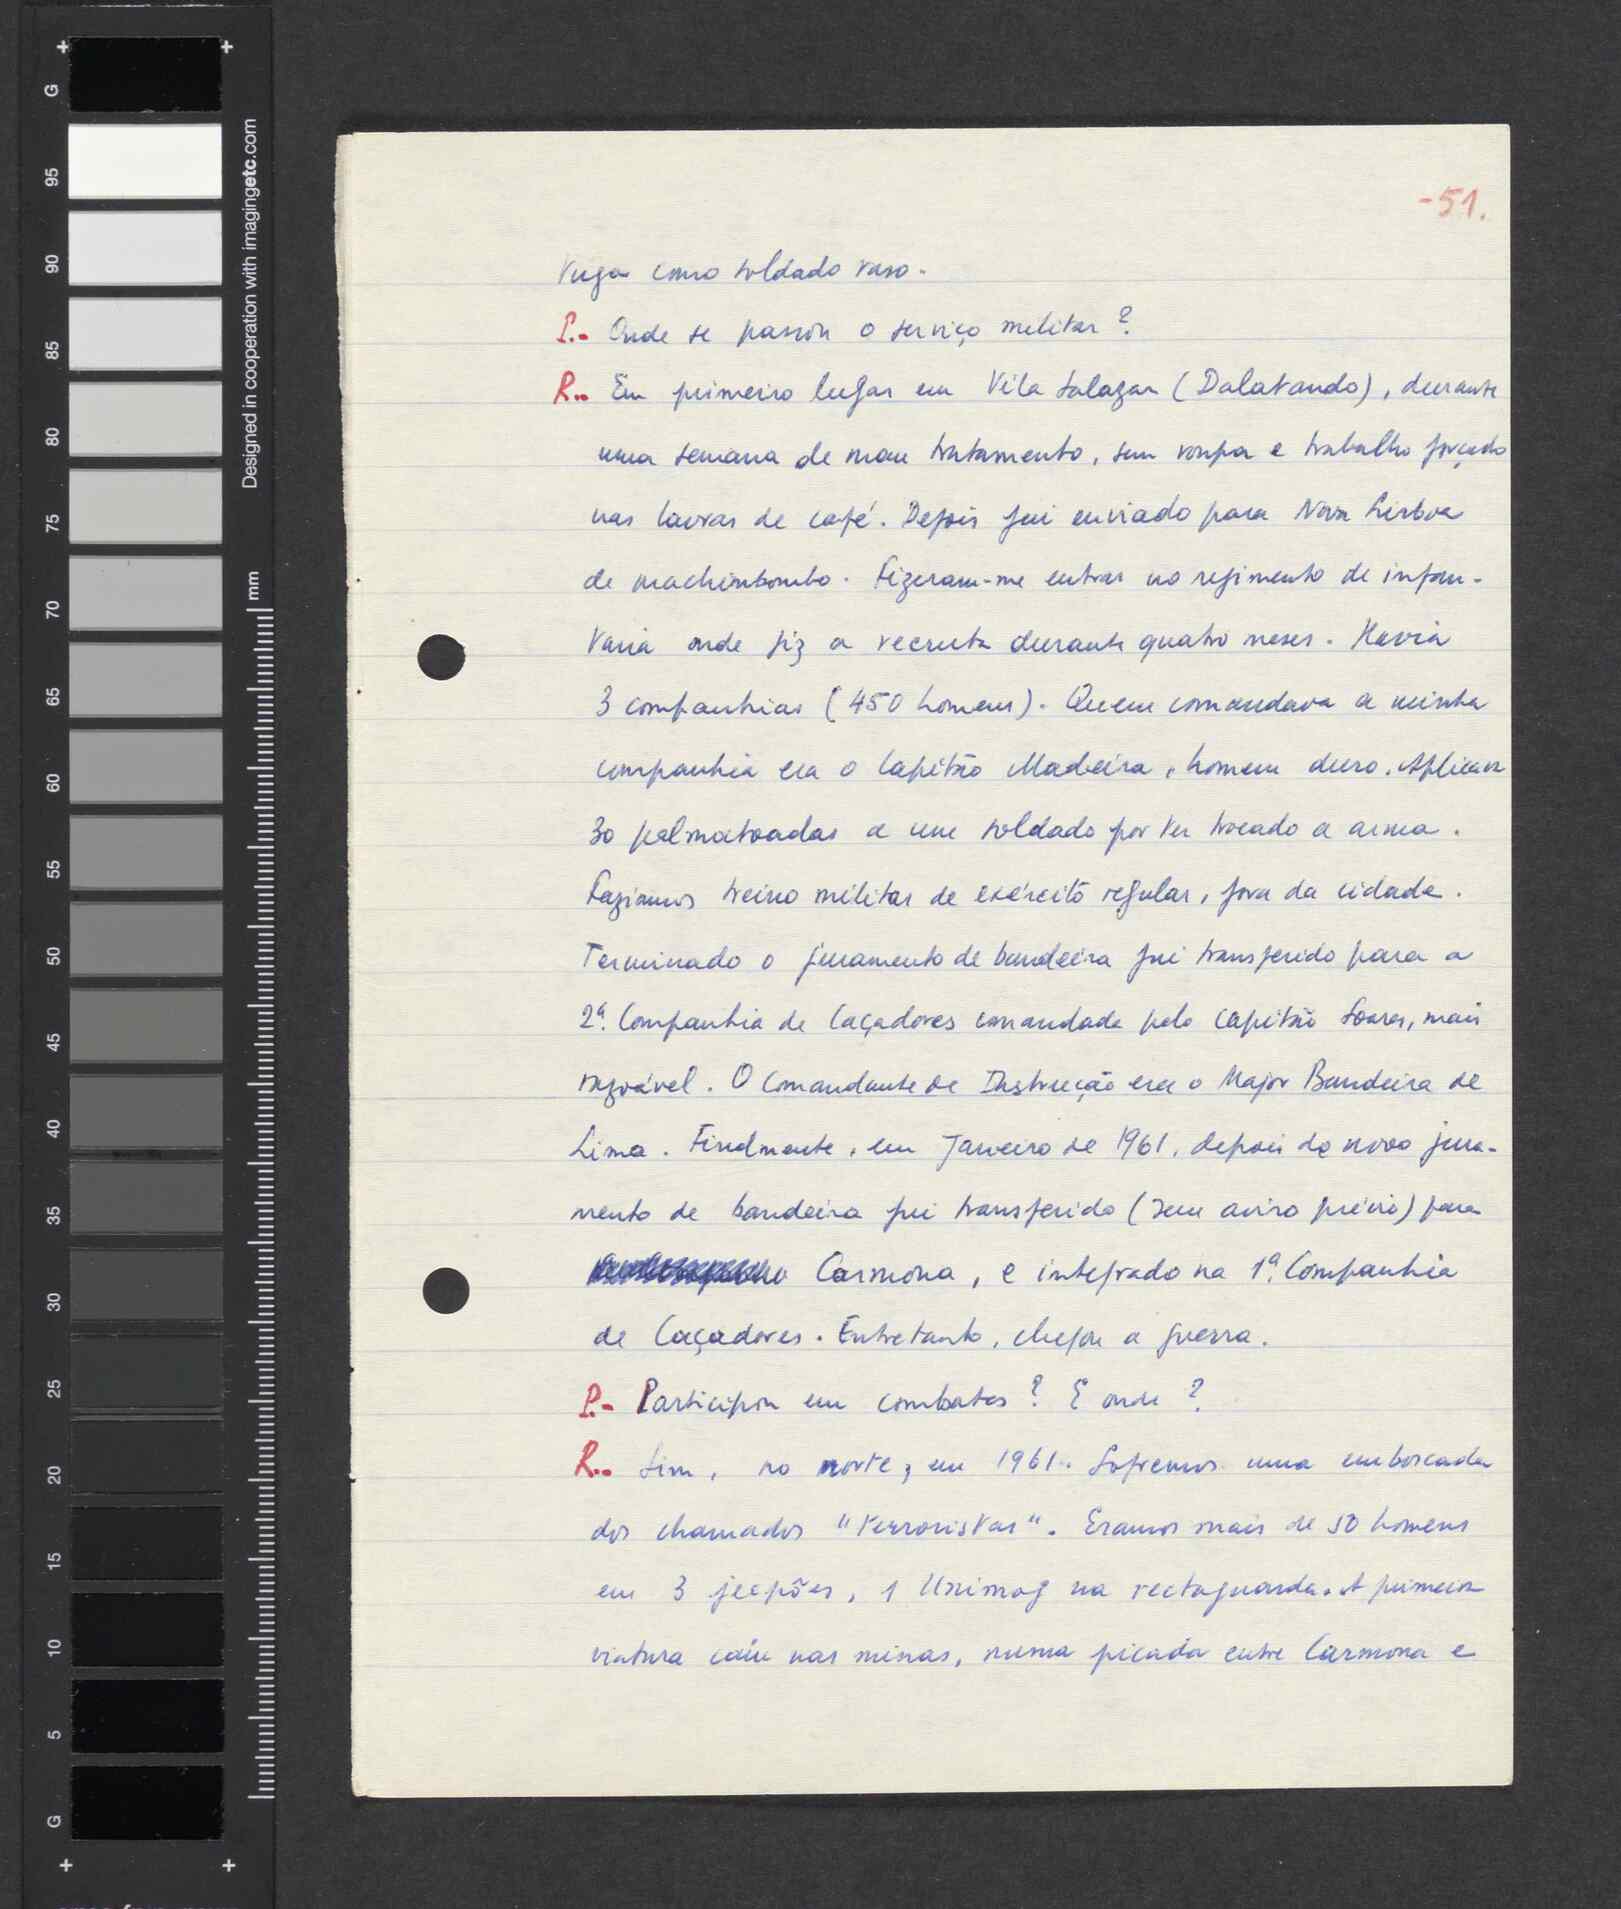 G
95
90
85
80
75
70
65
60
55
50
45
40
35
30
25
20
15
10
5
G
Designed in cooperation with imagingetc.com
mm
-51.
como soldado raso.
P.- Onde se passou o serviço militar?
R.. Em primeiro lugar em Vila Salazar (Dalatando), durante
uma semana de mau tratamento, sem roupa e trabalho forçado
nas lavras de café. Depois fui enviado para Nova Lisboa
de machimbombo. Fizeram-me entrar no regimento de infan-
taria onde fiz a recruta durante quatro meses. Havia
3 companhias (450 homens). Quem comandava a minha
companhia era o Capitão Madeira, homem duro. Aplicou
30 palmatoadas a um soldado por ter trocado a arma.
Fazíamos treino militar de exército regular, fora da cidade.
Terminado o juramento de bandeira fui transferido para a
2ª. Companhia de Caçadores comandada pelo capitão Soares, mais
razoável. O Comandante de Instrucção era o Major Bandeira de
Lima. Finalmente, em Janeiro de 1961, depois do novo jura-
mento de bandeira fui transferido (sem aviso prévio) para
Carmona, e integrado na 1ª. Companhia
de Caçadores. Entretanto, chegou a guerra.
P.- Participou em combates? E onde?
R.. Sim, no norte, em 1961. Sofremos uma emboscada
dos chamados "terroristas". Eramos mais de 50 homens
em 3 jeepões, 1 Unimog na rectaguarda. A primeira
viatura caíu nas minas, numa picada entre Carmona e